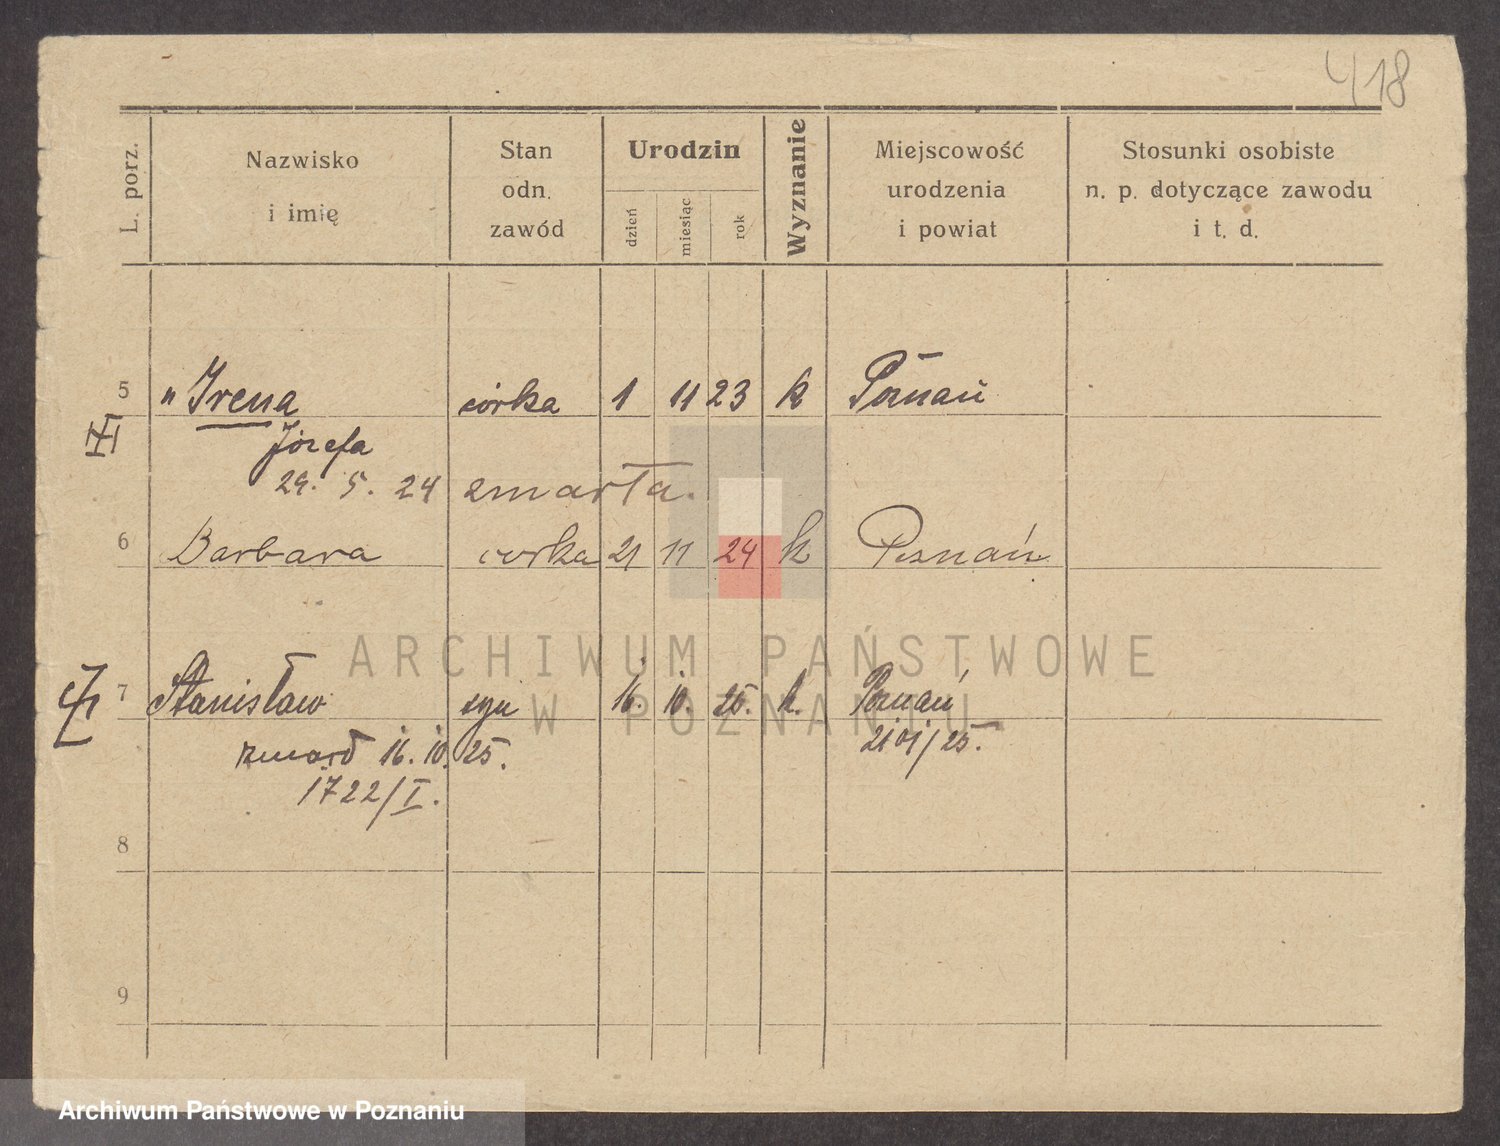 418
L. porz.
Nazwisko
i imię
Stan
odn.
zawód
Urodzin
dzień
miesiąc
rok
Wyznanie
Miejscowość
urodzenia
i powiat
Stosunki osobiste
n. p. dotyczące zawodu
i t. d.
5 " Irena córka 1 11 23 k Poznań
Józefa
29. 5. 24 zmarła.
6 Barbara corka 21 11 24 k Poznań
7 Stanisław syn 16. 10. 25. k. Poznań
zmarł 16. 10. 25.
1722/I.
8
9
ARCHIWUM PAŃSTWOWE
W POZNANIU
Archiwum Państwowe w Poznaniu